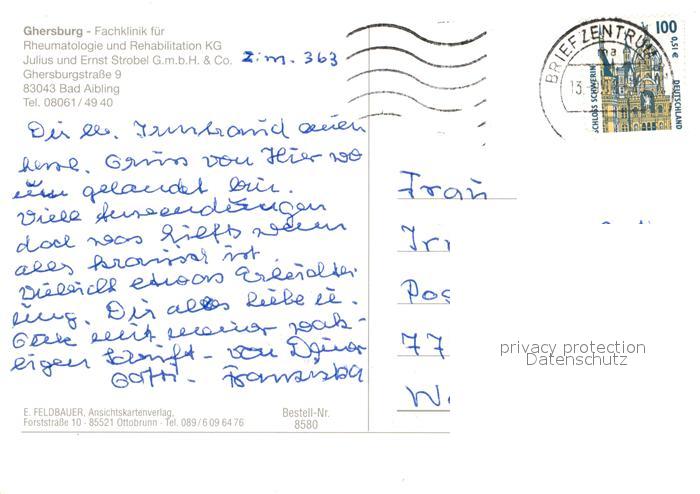 Ghersburg - Fachklinik für
Rheumatologie und Rehabilitation KG
Julius und Ernst Strobel G.m.b.H. & Co. Zim. 363
Ghersburgstraße 9
83043 Bad Aibling
Tel. 08061/49 40
BRIEFZENTRUM
13.
100
0,51 €
SCHLOSS SCHWERIN
DEUTSCHLAND
Dir u. Irmtraud einen
herzl. Gruss von Hier wo
gelandet bin.
Viele Anwendungen
doch was hilfts wenn
alles kaputt ist.
Vieleicht etwas Erleichter
ung. Dir alles liebe u.
Gute mit meiner wak-
eigen Schrift - von Deiner
Gotti - Franziska
Frau
Ir
Pos
77
W
privacy protection
Datenschutz
E. FELDBAUER, Ansichtskartenverlag,
Forststraße 10 - 85521 Ottobrunn - Tel. 089/6 09 64 76
Bestell-Nr.
8580